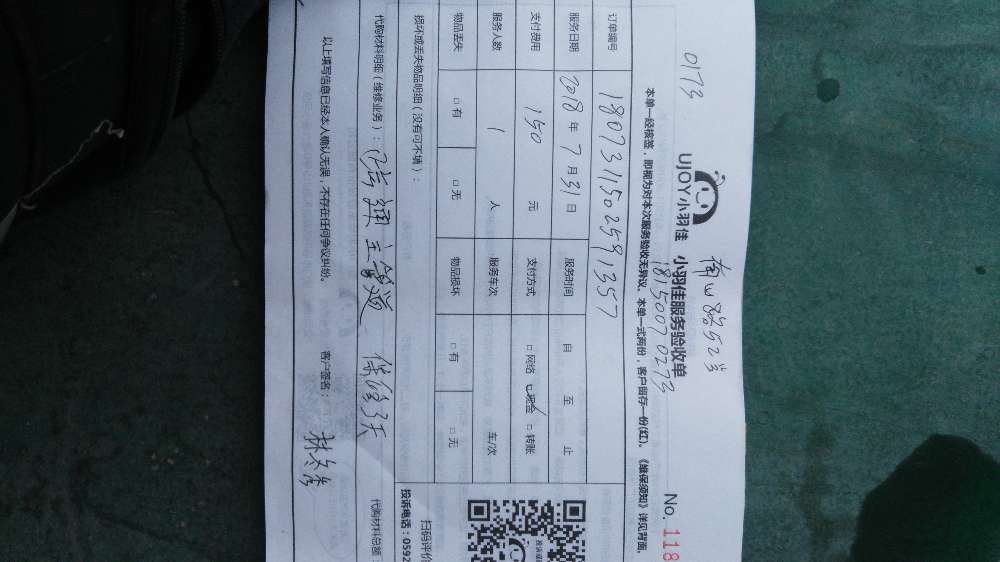 0173
南山路52号
UJOY小羽佳 小羽佳服务验收单
18150070273
No. 118
本单一经核签，即视为对本次服务验收无异议。本单一式两份，客户留存一份(红)。《维保须知》详见背面。
订单编号 1807311502591357
服务日期 2018 年 7 月 31 日 服务时间 自 至 止
支付费用 150 元 支付方式 □网络 ☑现金 □转账
服务人数 1 人 服务车次 车/次
物品丢失 □有 □无 物品损坏 □有 □无
损坏或丢失物品明细（没有可不填）：
扫码评价
投诉电话：0592
代购材料明细（维修业务）： 疏通主管道 保修3天 代购材料总额：
以上填写信息已经本人确认无误，不存在任何争议纠纷。 客户签名：